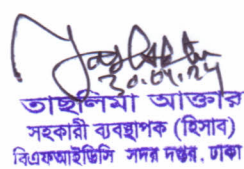 ৩০.০৯.২৫
তাছলিমা আক্তার
সহকারী ব্যবস্থাপক (হিসাব)
বিএফআইডিসি সদর দপ্তর, ঢাকা